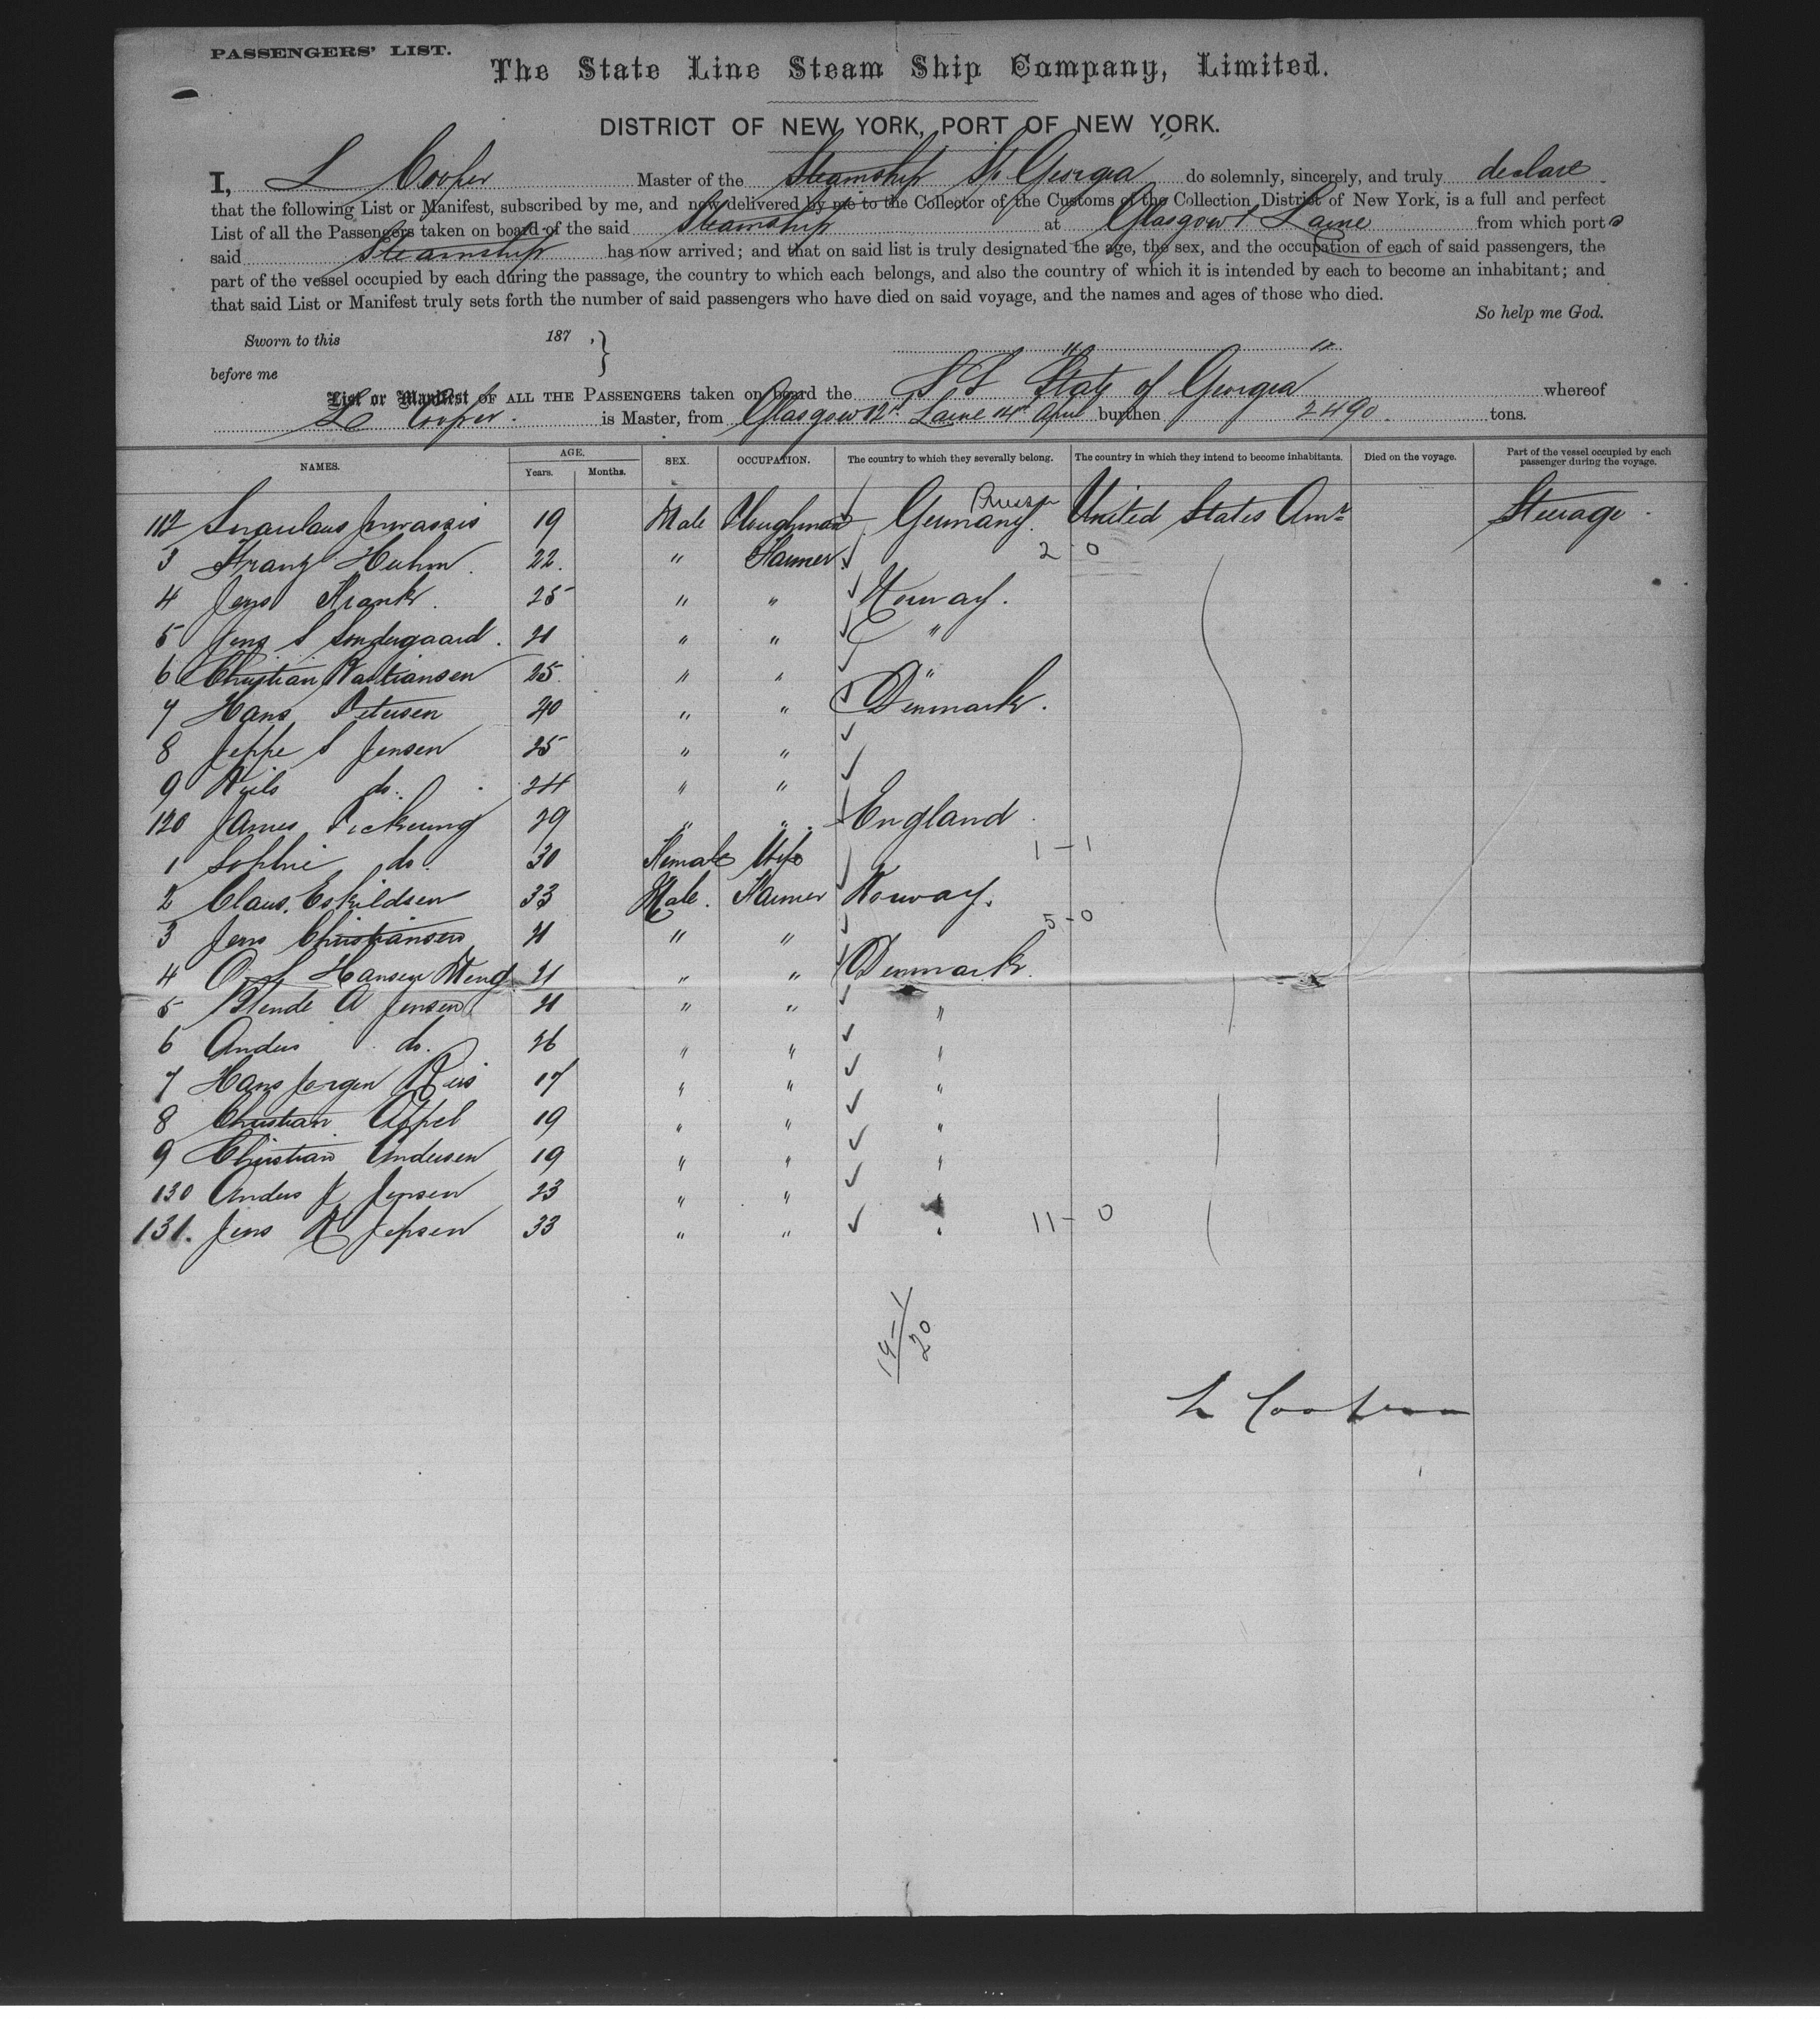 PASSENGERS' LIST.
The State Line Steam Ship Company, Limited.
DISTRICT OF NEW YORK, PORT OF NEW YORK.
I, L Cooper Master of the Steamship St. Georgia do solemnly, sincerely, and truly declare
that the following List or Manifest, subscribed by me, and now delivered by me to the Collector of the Customs of the Collection District of New York, is a full and perfect
List of all the Passengers taken on board of the said Steamship at Glasgow & Larne from which ports
said Steamship has now arrived; and that on said list is truly designated the age, the sex, and the occupation of each of said passengers, the
part of the vessel occupied by each during the passage, the country to which each belongs, and also the country of which it is intended by each to become an inhabitant; and
that said List or Manifest truly sets forth the number of said passengers who have died on said voyage, and the names and ages of those who died.
So help me God.
Sworn to this 187 ,
before me
List or Manifest OF ALL THE PASSENGERS taken on board the S.S "State of Georgia" whereof
L Cooper. is Master, from Glasgow 12th Larne 14th April burthen 2490. tons.
NAMES. AGE. Years. Months. SEX. OCCUPATION. The country to which they severally belong. The country in which they intend to become inhabitants. Died on the voyage. Part of the vessel occupied by each passenger during the voyage.
112 19 Male Ploughman Germany. United States Amr Steerage.
3 Franz Huhn. 22. " Farmer. 2-0
4 Jens Krank. 25 " " Norway.
5 Jens S Sondergaard. 21 " " "
6 Christian 25. " " "
7 Hans Petersen 20 " " Denmark.
8 Jeppe S Jensen 25 " "
9 Niels do. 24 " "
120 James Pickering 29 " " England
1 Sophie do. 30 Female Wife 1-1
2 Claus Eskildsen 33 Male. Farmer Norway.
3 Jens Christiansen 21 " " 5-0
4 Hansen 21 " " Denmark.
5 A Jensen 21 " " "
6 Anders do. 26 " " "
7 Hans Jorgen 17 " " "
8 Christian Appel 19 " " "
9 Christian Andersen 19 " " "
130 Anders Jensen 23 " " "
131. Jens Jepsen 33 " " " 11-0
19-1
20
L Cooper